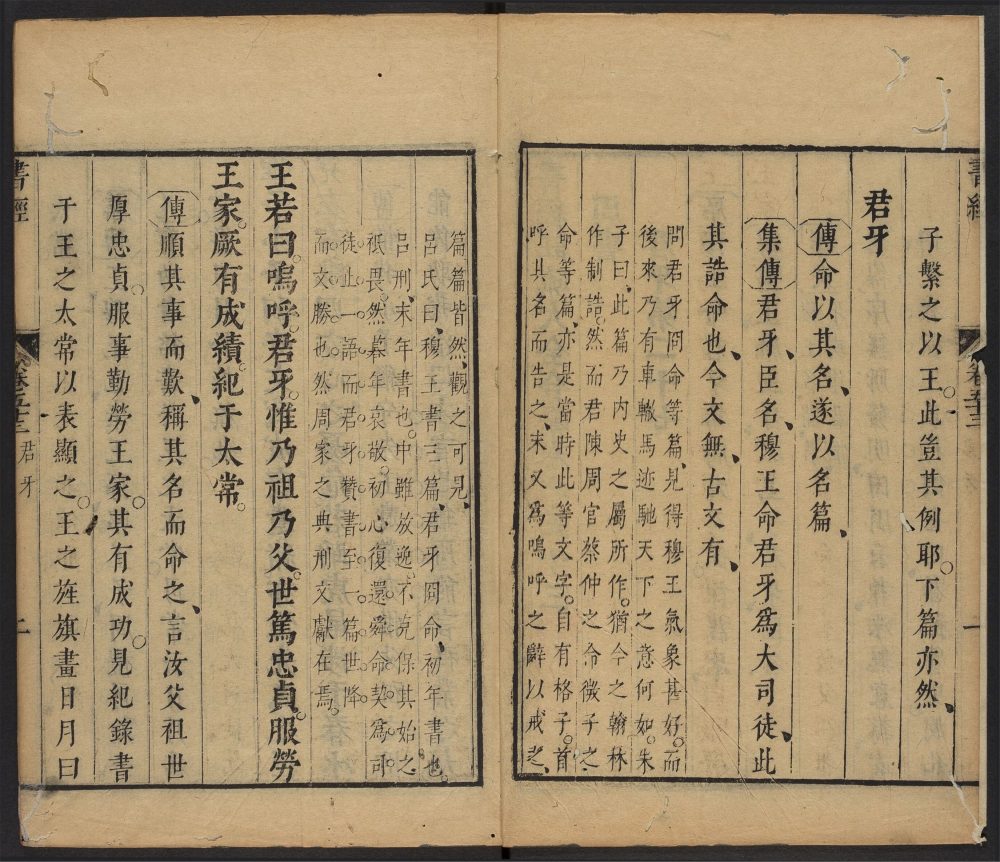 子繫之以王此豈其例耶下篇亦然
君牙
傳命以其名遂以名篇
集傳君牙臣名穆王命君牙爲大司徒此
其誥命也今文無古文有
問君牙冏命等篇見得穆王氣象甚好而
後來乃有車轍馬迹馳天下之意何如朱
子曰此篇乃內史之屬所作猶今之翰林
作制誥然而君陳周官蔡仲之命微子之
命等篇亦是當時此等文字自有格子首
呼其名而告之末又爲嗚呼之辭以戒之
篇篇皆然觀之可見
呂氏曰穆王書三篇君牙冏命初年書也
呂刑末年書也中雖放逸不克保其始之
祗畏然暮年哀敬初心復還舜命契爲司
徒止一語而君牙贊書至一篇世降
而文勝也然周家之典刑文獻在焉
王若曰嗚呼君牙惟乃祖乃父世篤忠貞服勞
王家厥有成績紀于太常
傳順其事而歎稱其名而命之言汝父祖世
厚忠貞服事勤勞王家其有成功見紀錄書
于王之太常以表顯之王之旌旗畫日月曰
書經
卷五十三
君牙
二
書經
一